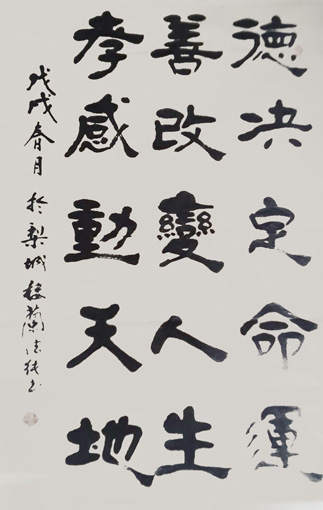 德决定命運
善改變人生
孝感動天地
戊戌春月於梨城楼蘭